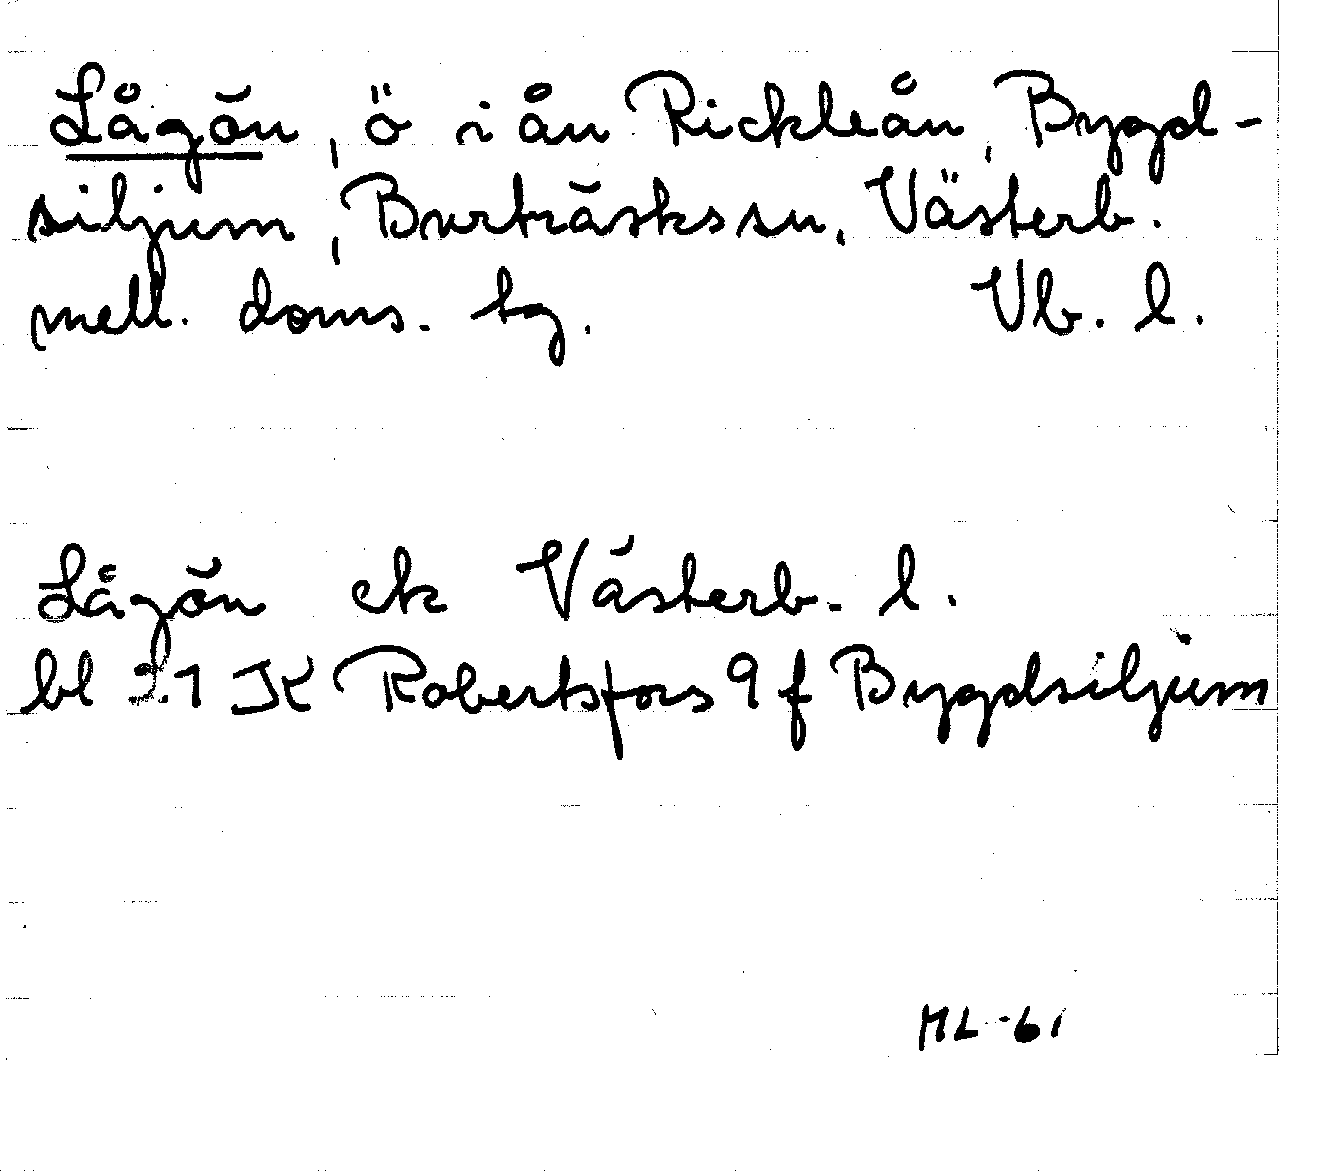 Lågön, ö i ån Rickleån, Bygd-
siljum, Burträsks sn, Västerb.
mell. doms. tg. Vb. l.
Lågön ek Västerb. l.
bl 21 JK Robertsfors 9 f Bygdsiljum
ML-61